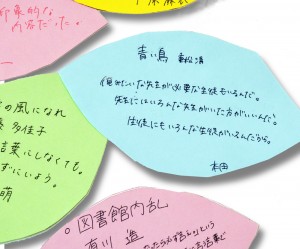 印象的な
内容だった。
青い鳥 重松清
俺みたいな先生が必要な生徒もいるんだ。
先生にはいろんな先生がいた方がいいんだ。
生徒にもいろんな生徒がいるんだから。
本田
の風になれ
多佳子
言葉にしなくても。
ずにいよう。
萌
○図書館内乱
有川